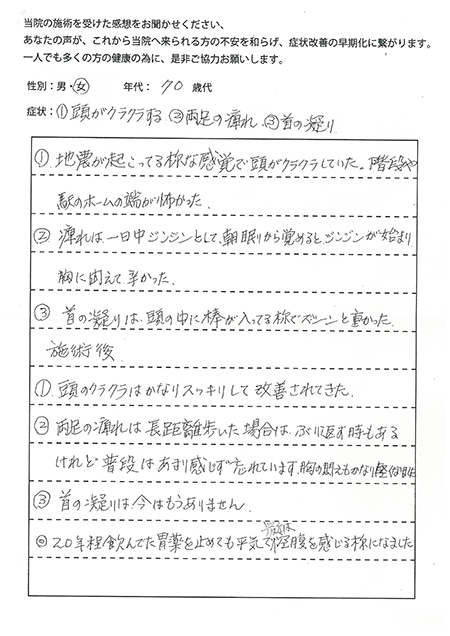 当院の施術を受けた感想をお聞かせください、
あなたの声が、これから当院へ来られる方の不安を和らげ、症状改善の早期化に繋がります。
一人でも多くの方の健康の為に、是非ご協力お願いします。
性別：男・女 年代： 70 歳代
症状：①頭がクラクラする ②両足の痺れ ③首の凝り
① 地震が起こってる様な感覚で頭がクラクラしていた。階段や
駅のホームの端が怖かった.
② 痺れは一日中ジンジンとして、朝眠りから覚めると、ジンジンが始まり
胸に悶えて辛かった.
③ 首の凝りは、頭の中に棒が入ってる様でズーンと重かった.
施術後
① 頭のクラクラはかなりスッキリして改善されてきた.
② 両足の痺れは長距離歩いた場合は、ぶり返す時もある
けれど普段はあまり感じず忘れています.胸の悶えもかなり軽く
③ 首の凝りは今はもうありません.
◎ 20年程飲んでた胃薬を止めても平気で最近は空腹を感じる様になりました